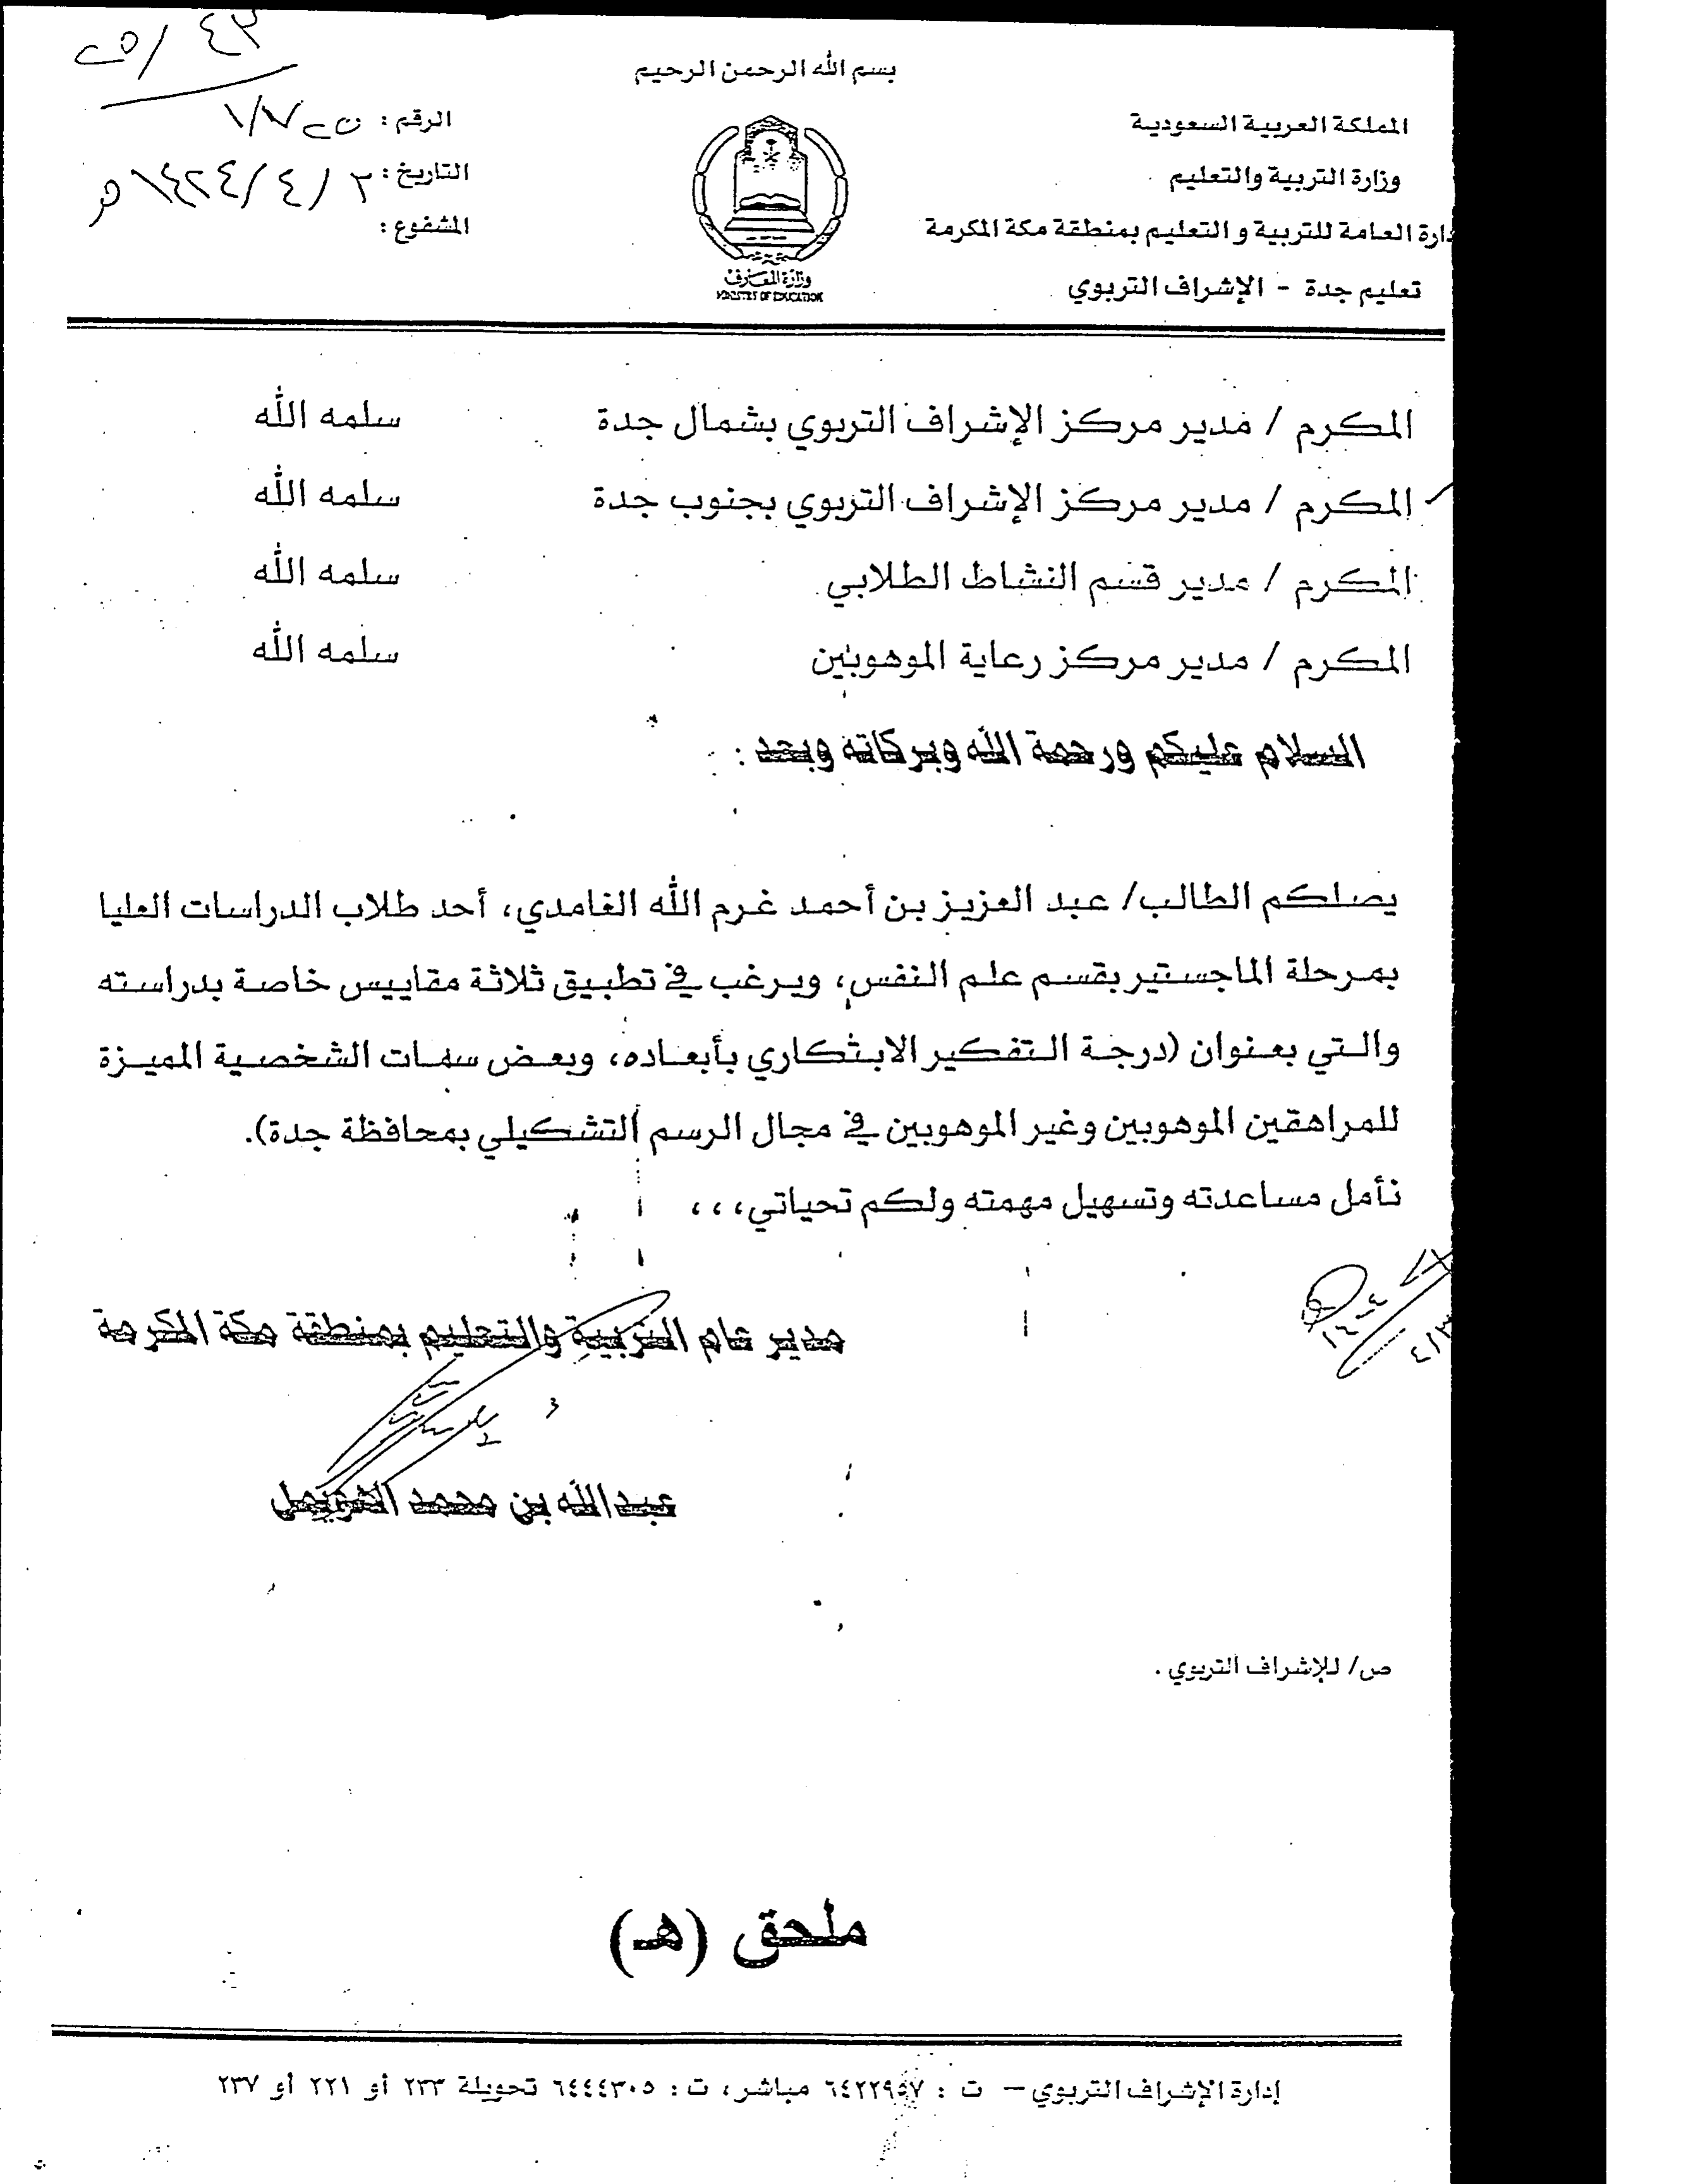 ٤٣ / ٢٥
بسم الله الرحمن الرحيم
المملكة العربية السعودية
وزارة التربية والتعليم
دارة العامة للتربية و التعليم بمنطقة مكة المكرمة
تعليم جدة - الإشراف التربوي
الرقم :
التاريخ : ٢ / ٤ / ١٤٢٤ هـ
المشفوع :
وزارة المعارف
MINISTRY OF EDUCATION
المكرم / مدير مركز الإشراف التربوي بشمال جدة سلمه الله
المكرم / مدير مركز الإشراف التربوي بجنوب جدة سلمه الله
المكرم / مدير قسم النشاط الطلابي سلمه الله
المكرم / مدير مركز رعاية الموهوبين سلمه الله
السلام عليكم ورحمة الله وبركاته وبعد :
يصلكم الطالب/ عبد العزيز بن أحمد غرم الله الغامدي، أحد طلاب الدراسات العليا
بمرحلة الماجستير بقسم علم النفس، ويرغب في تطبيق ثلاثة مقاييس خاصة بدراسته
والتي بعنوان (درجة التفكير الابتكاري بأبعاده، وبعض سمات الشخصية المميزة
للمراهقين الموهوبين وغير الموهوبين في مجال الرسم التشكيلي بمحافظة جدة).
نأمل مساعدته وتسهيل مهمته ولكم تحياتي،،،
مدير عام التربية والتعليم بمنطقة مكة المكرمة
عبدالله بن محمد
ص/ للإشراف التربوي .
ملحق (هـ)
إدارة الإشراف التربوي – ت : ٦٤٢٢٩٥٧ مباشر، ت : ٦٤٤٤٣٠٥ تحويلة ٢٣٣ أو ٢٢١ أو ٢٣٧